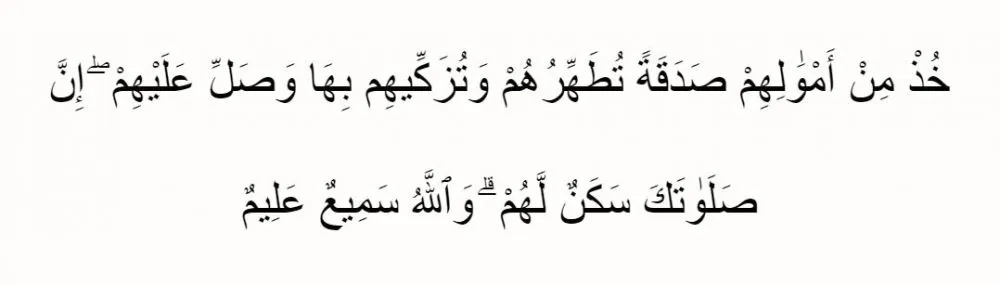 خُذْ مِنْ أَمْوَٰلِهِمْ صَدَقَةً تُطَهِّرُهُمْ وَتُزَكِّيهِم بِهَا وَصَلِّ عَلَيْهِمْ ۖ إِنَّ
صَلَوَٰتَكَ سَكَنٌ لَّهُمْ ۗ وَٱللَّهُ سَمِيعٌ عَلِيمٌ